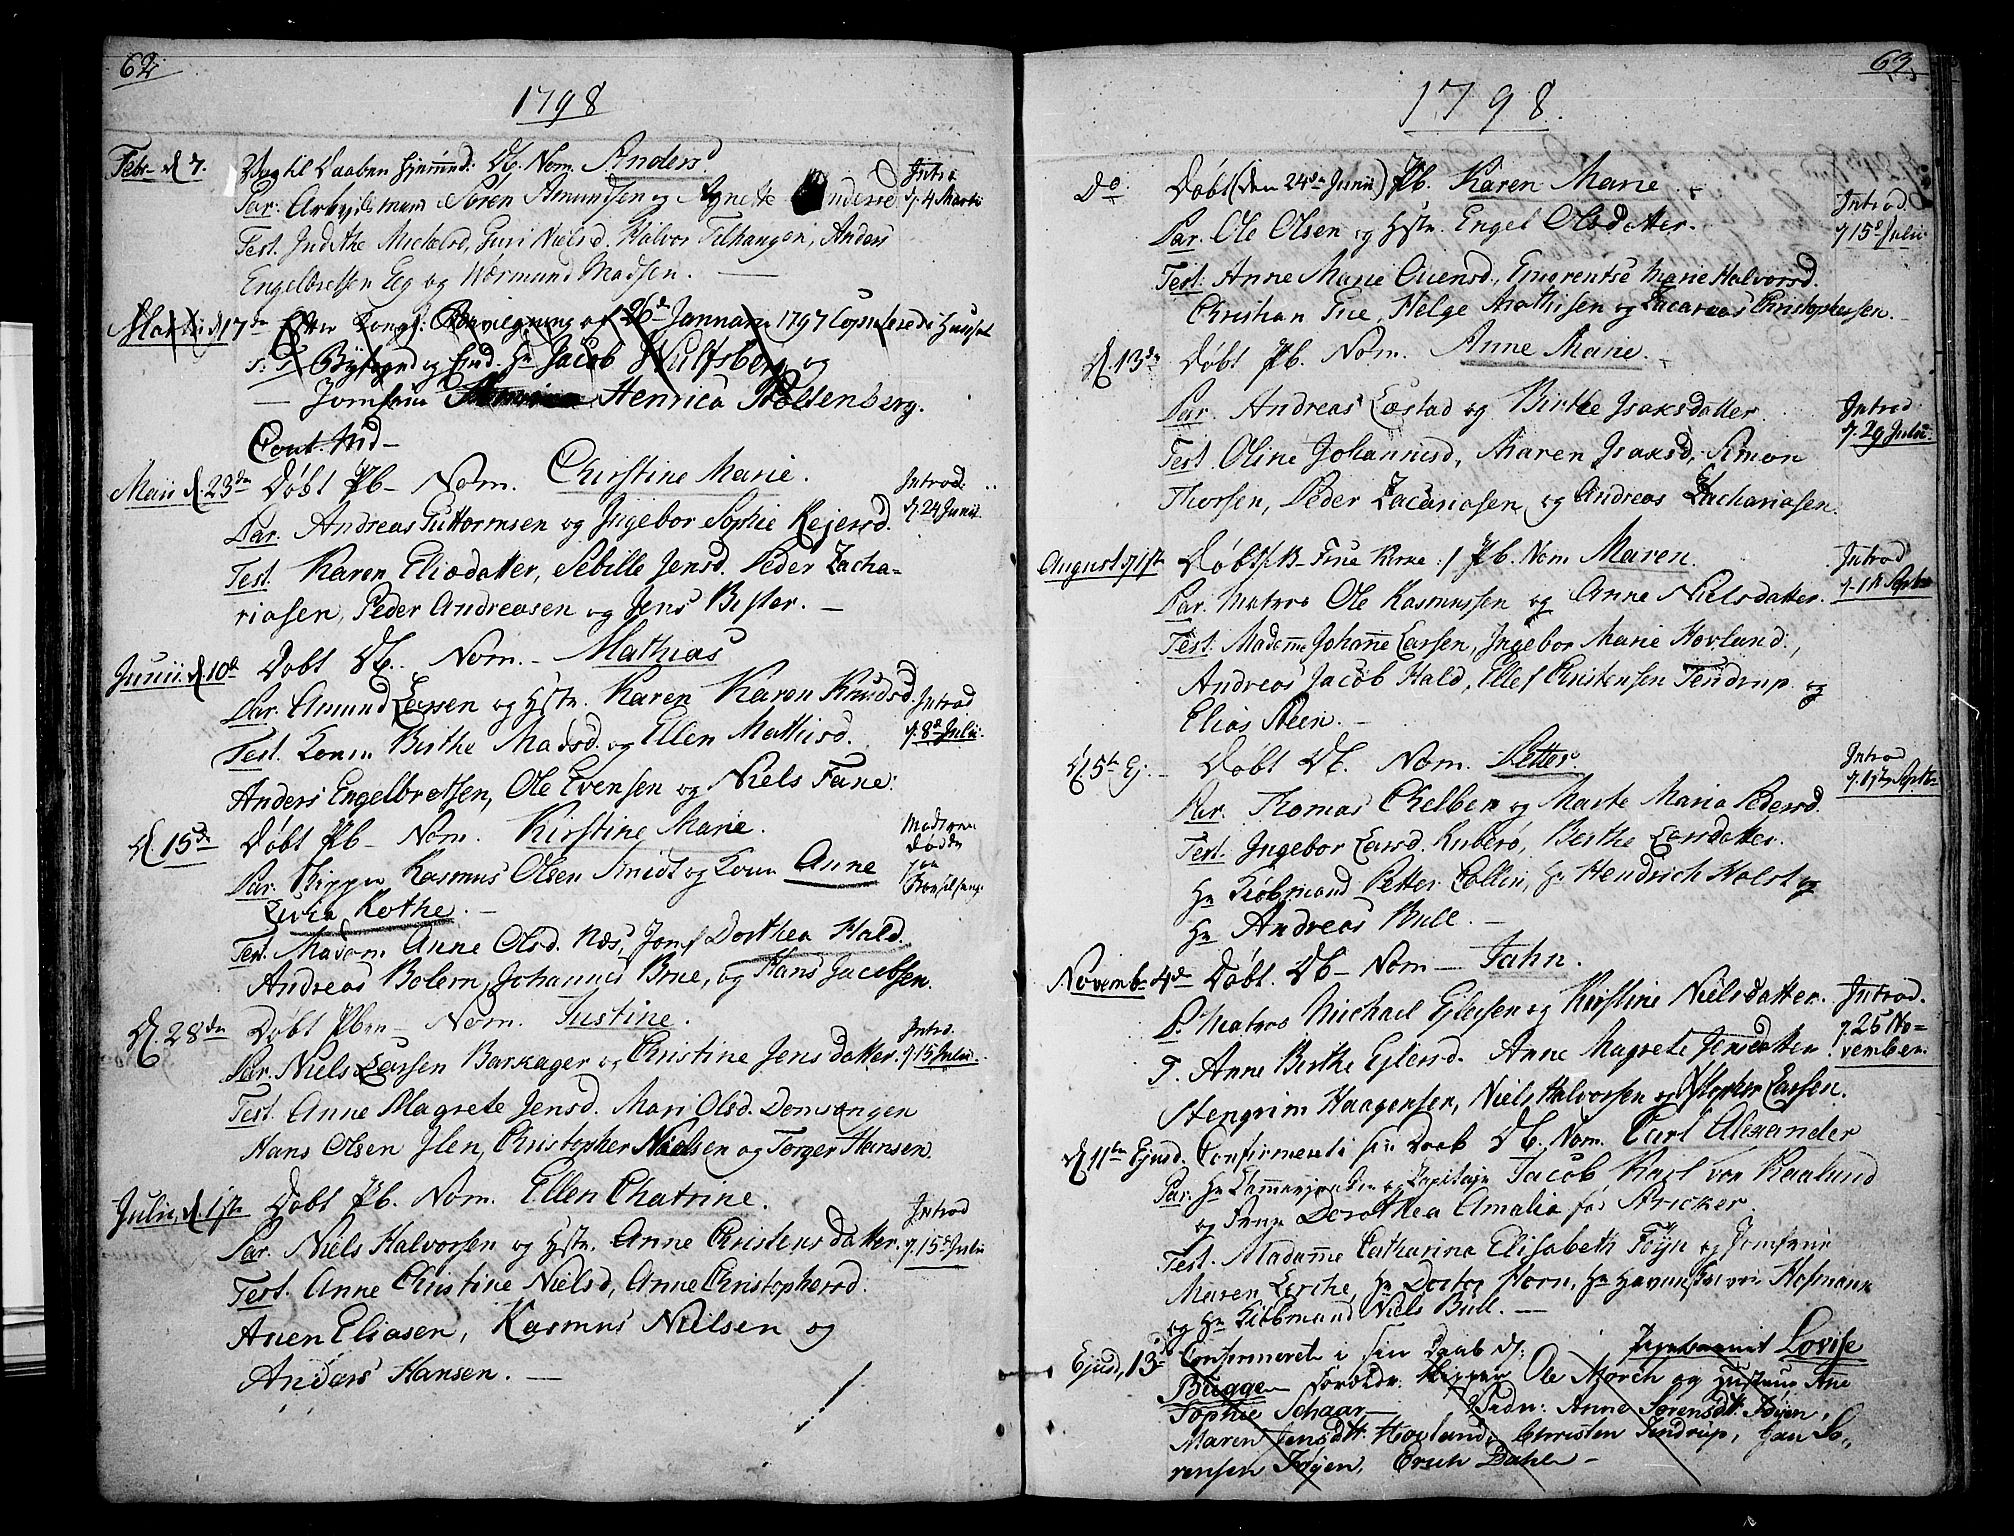 62
1798
Febr. d 7. Db. Nom. Anders Intro
Par. Arbejdsmand Søren Amundsen og Agnethe d. 4 Martii
Test. Judithe Michelsd, Guri Nielsd. Halvor Anders
Engelbretsen Eeg og Wermund Madsen. —
Martii d 17de Efter Kongl. Bevilgning af 26de Januarii 1797 Copulerede i Huuset
Byfoged og Hr Jacob Wulfsberg og
— Jomfrue Henrica Stoltenberg.
Cont. Ind —
Maii d. 23de Døbt Pb — Nom. Christine Marie. Introd:
Par. Andreas Guttormsen og Ingebor Sophie Rejersd. d. 24 Junii
Test. Karen Eliædatter, Sebille Jensd. Peder Zacha=
riasen, Peder Andreasen og Jens Bister. —
Junii d. 10d Døbt Db. Nom. — Mathias
Par. Amund Larsen og Hstr. Karen Karen Knudsd. Introd
Test. Berthe Madsd. og Ellen Mathisd. d. 8d Julii
Anders Engelbretsen, Ole Evensen og Niels Fane.
d. 15de Døbt Pb — Nom. Kirstine Marie. Moderen
Par. Skipper Rasmus Olsen Smidt og Kone Anne døde
Livia Kothe. — Barselseng
Test. Madam. Anne Olsd. Næs, Jomf Dorthea Hald.
Andreas Bolern, Johannes Brue, og Hans Jacobsen.
d. 28de Døbt Pben — Nom. Justine. Intr.
Par. Niels Larsen Barkager og Christine Jensdatter. d. 15 Julii.
Test. Anne Magrete Jensd. Mari Olsd. Domsongen
Hans Olsen Ilen, Christopher Nielsen og Torger Hansen.
Julii, d. 1ste Døbt Pb. Nom. Ellen Chatrine. Introd
Par. Niels Halvorsen og Hstr. Anne Christensdatter. d. 15d Julii
Test. Anne Christine Nielsd, Anne Christophersd.
Auen Eliasen, Rasmus Nielsen og
Anders Hansen. —
63
1798.
Do. Døbt (den 24de Junii) Pb. Karen Marie Introd
Par. Ole Olsen og Hstr. Engel Olsdatter. d 15d Julii
Test. Anne Marie Ouensd, Emerentse Marie Halvorsd.
Christian Fue, Helge Mathisen og Zacarias Christophersen.
d. 13de Døbt Pb. Nom. Anne Marie.
Par. Andreas Løstad og Birthe Isaksdatter Introd
Test. Oline Johannesd, Maren Isaksd, Simon d. 29 Julii
Thorsen, Peder Zacariasen, og Andreas Zachariasen.
August d 1ste Døbt Pb. Nom Maren. Introd
Par. Matros Ole Rasmussen og Anne Nielsdatter.
Test. Madame Johanne Larsen, Ingebor Marie Hovland.,
Andreas Jacob Hald, Ellef Christensen Tendrup og
Elias Steen. —
d. 5te Ej. — Døbt Db. Nom. Petter. Introd
Par. Thomas Chelben og Marte Maria Pedersd.
Test. Ingebor Larsd. Ruberø, Berthe Larsdatter.
Hr Kiøbmand Petter Collin, Hr Hendrich Holst og
Hr Andreas Bull. —
Novemb. 4de Døbt. Db — Nom — Jahn.
P. Matros Michael Ejlersen og Kirstine Nielsdatter. Introd.
T. Anne Berthe Ejlersd. Anne Magrete Jensdatter d. 25 No=
Stengrim Haagensen, Niels Halvorsen og Christopher Larsen. vember
d. 11te Ejusd. Confirmeret i sin Daab Db. Nom. Carl Alexander
Par. Hr Kammerjunker og Capitajn Jacob Karl von Kaalund
og Frue Dorothea Amalia fød Stricker.
Test. Madamme Catharina Elisabeth Føyn og Jomfrue
Maren Lerche, Hr Doctor Horn, Hr Hofmann
og Hr Kiøbmand Niels Bull. —
Ejusd, 13de Confirmeret i sin Daab Lovise
Bugge — Foreldr. Skipper Ole Mørch og Hustrue Ane
Sophie Schaar — Vidn: Anne Sørensdtr. Føjen,
Maren Jensdtr. Hovland, Christen Tendrup, Jan Sø=
rensen Føjen, Erich Dahl —